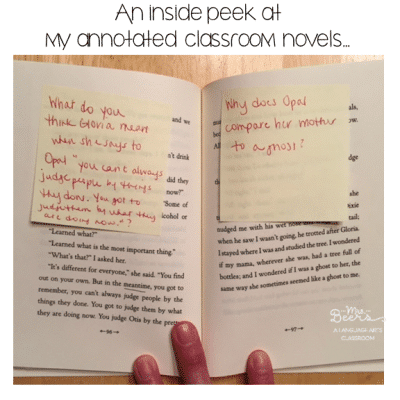 An inside peek at
My annotated classroom novels...
What do you
think Gloria meant
when she says to
Opal "you can't always
judge people by things
they done. You got to
judge them by what they
are doing now."?
and we
n't drink
did they
now?"
"Some of
icohol or
"Learned what?"
"Learned what is the most important thing."
"What's that?" I asked her.
"It's different for everyone," she said. "You find
out on your own. But in the meantime, you got to
remember, you can't always judge people by the
things they done. You got to judge them by what
they are doing now. You judge Otis by the pretty
96
Why does Opal
compare her mother
to a ghost?
ale,
ow.
dge
she
ixie
tail;
nudged me with his wet nose
when he saw I wasn't going, he trotted after Gloria.
I stayed where I was and studied the tree. I wondered
if my mama, wherever she was, had a tree full of
bottles; and I wondered if I was a ghost to her, the
same way she sometimes seemed like a ghost to me.
97
Mrs.
Beers
A LANGUAGE ARTS
CLASSROOM